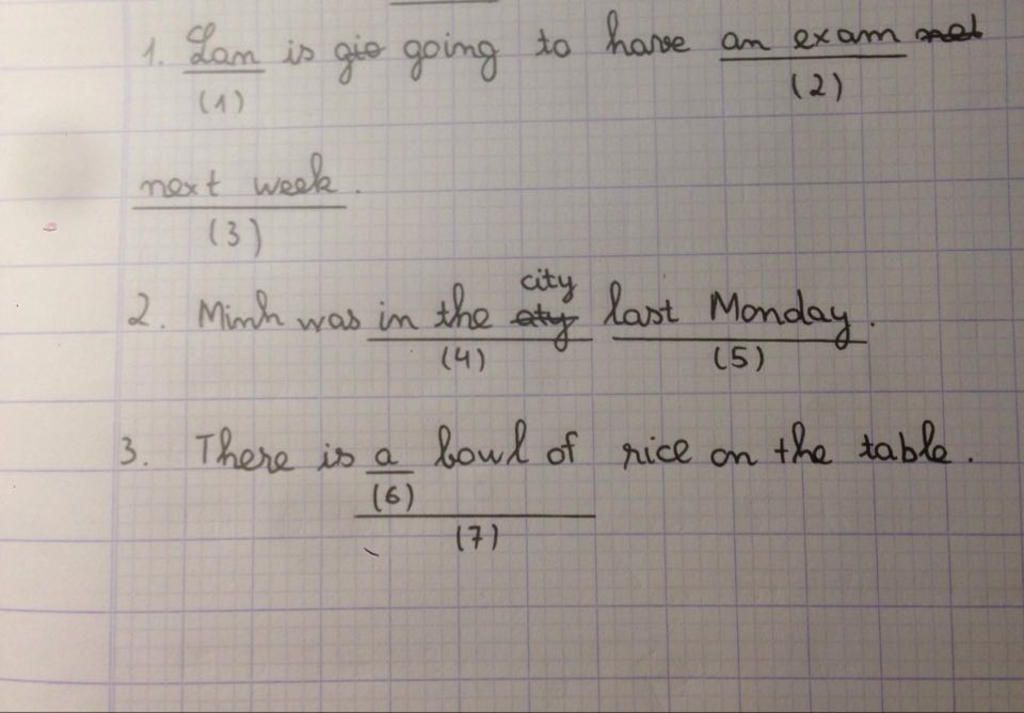 1. Lan is gio going to have an exam
(1) (2)
next week.
(3)
city
2. Minh was in the last Monday.
(4) (5)
3. There is a bowl of rice on the table.
(6)
(7)